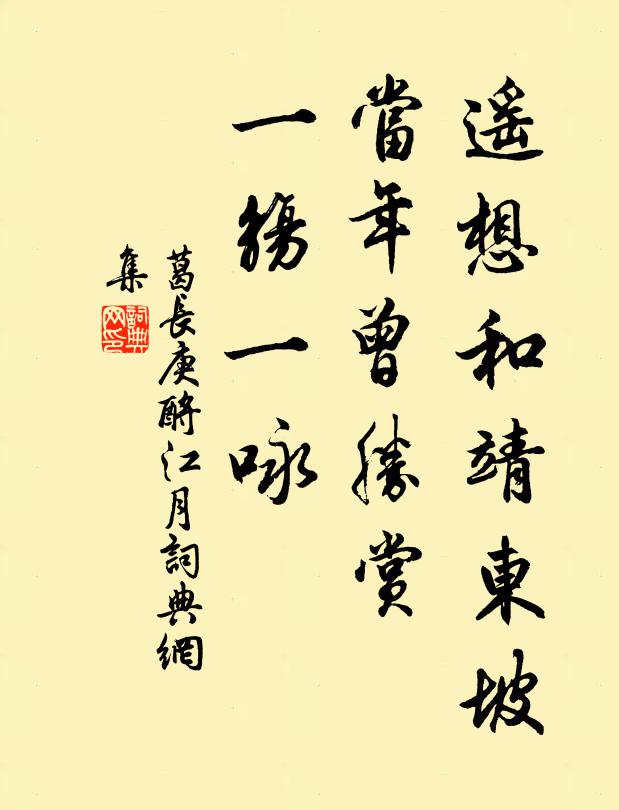 遥想和靖東坡
當年曾勝賞
一觴一咏
葛長庚酹江月詞典網
集
詞典
网印